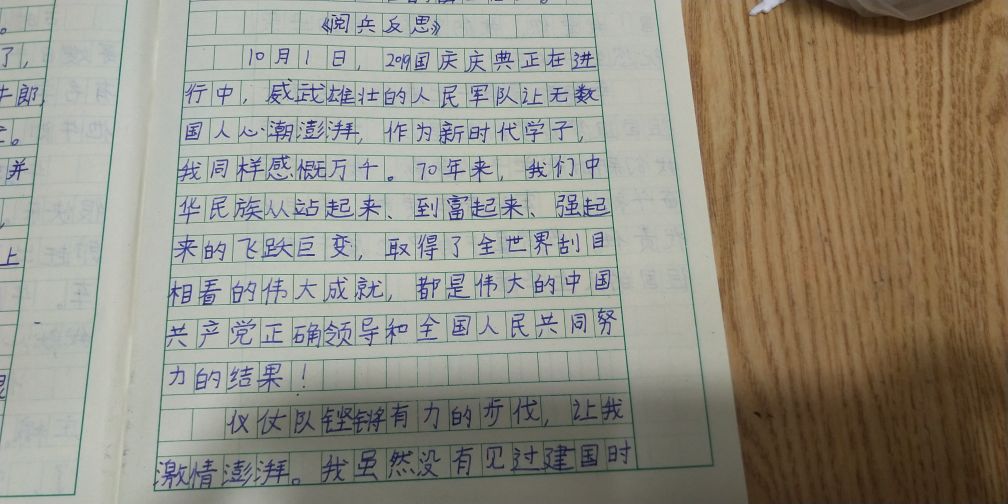 《阅兵反思》
10月1日，2019国庆庆典正在进
行中，威武雄壮的人民军队让无数
国人心潮澎湃，作为新时代学子，
我同样感慨万千。70年来，我们中
华民族从站起来、到富起来、强起
来的飞跃巨变，取得了全世界刮目
相看的伟大成就，都是伟大的中国
共产党正确领导和全国人民共同努
力的结果！
仪仗队铿锵有力的步伐，让我
激情澎湃。我虽然没有见过建国时
了，
牛郎，
并
上